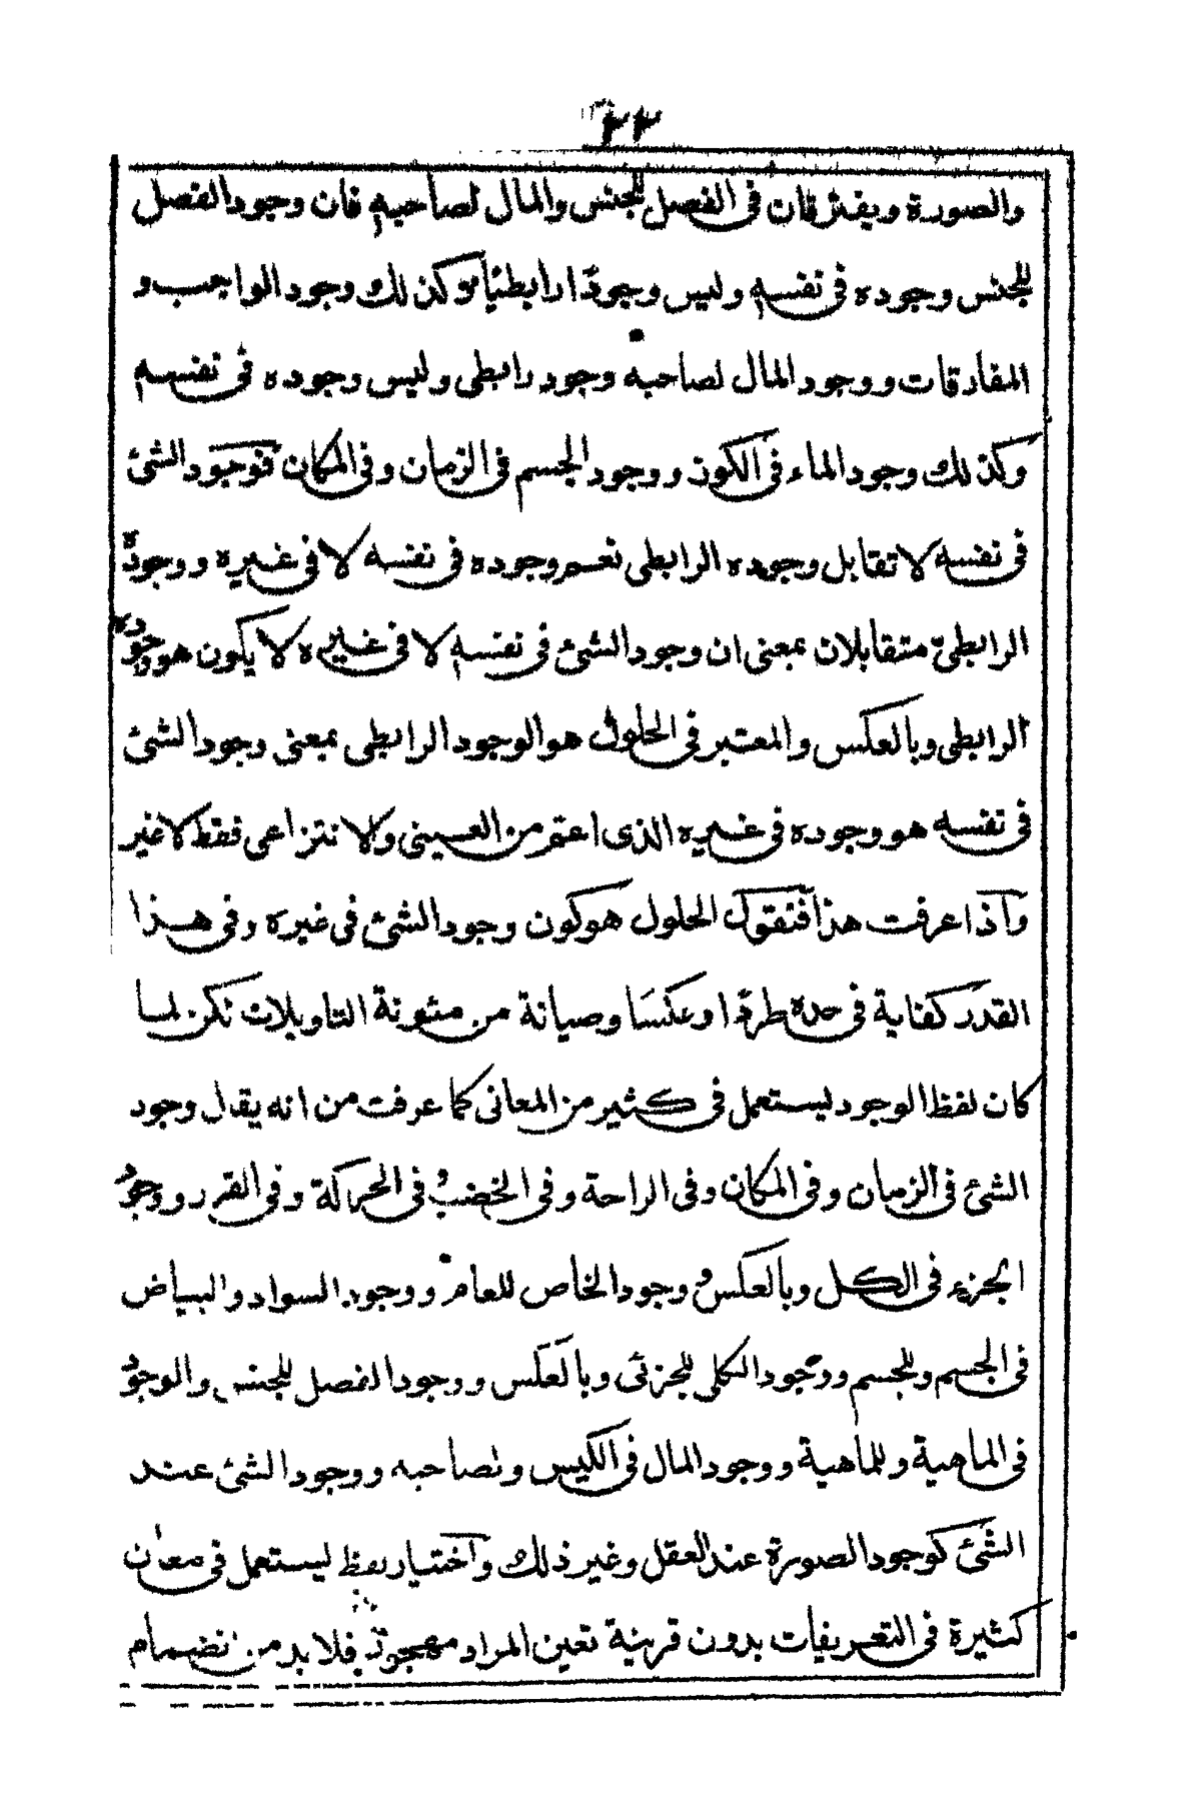 ٢٢
والصورة ويفترقان فى الفصل للجنس والمال لصاحبه فان وجود الفصل
للجنس وجوده فى نفسه وليس وجودًا رابطيًا وكذلك وجود الواجب و
المفارقات ووجود المال لصاحبه وجود رابطى وليس وجوده فى نفسه
وكذلك وجود الماء فى الكوز ووجود الجسم فى الزمان وفى المكان فوجود الشئ
فى نفسه لا تقابل وجوده الرابطى نعم وجوده فى نفسه لا فى غيره ووجودهٗ
الرابطىّ متقابلان بمعنى ان وجود الشئ فى نفسه لا فى غيره لا يكون هو وجوده
الرابطى وبالعكس والمعتبر فى الحلول هو الوجود الرابطى بمعنى وجود الشئ
فى نفسه هو وجوده فى غيره الذى اعم من العينى والانتزاعى فقط لا غير
وآذا عرفت هذا فنقول الحلول هو كون وجود الشئ فى غيره وفى هذا
القدر كفاية فى حده طردًا وعكسًا وصيانة من مئونة التاويلات لكن لما
كان لفظ الوجود ليستعمل فى كثير من المعانى كما عرفت من انه يقال وجود
الشئ فى الزمان وفى المكان وفى الراحة وفى الخضب وفى الحركة وفى القرر ووجود
الجزء فى الكل وبالعكس ووجود الخاص للعام ووجود السواد والبياض
فى الجسم وللجسم ووجود الكلى للجزئى وبالعكس ووجود الفصل للجنس والوجود
فى الماهية وللماهية ووجود المال فى الكيس ولصاحبه ووجود الشئ عند
الشئ كوجود الصورة عند العقل وغير ذلك وآختيار لفظ ليستعمل فى معان
كثيرة فى التعريفات بدون قرينة تعين المراد مهجور فلا بد من انضمام